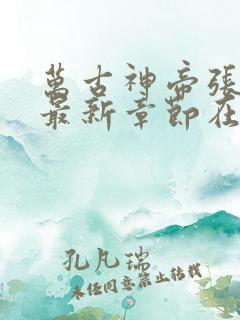 萬古神帝張
最新章節在
孔凡瑞
未經同意禁止轉載